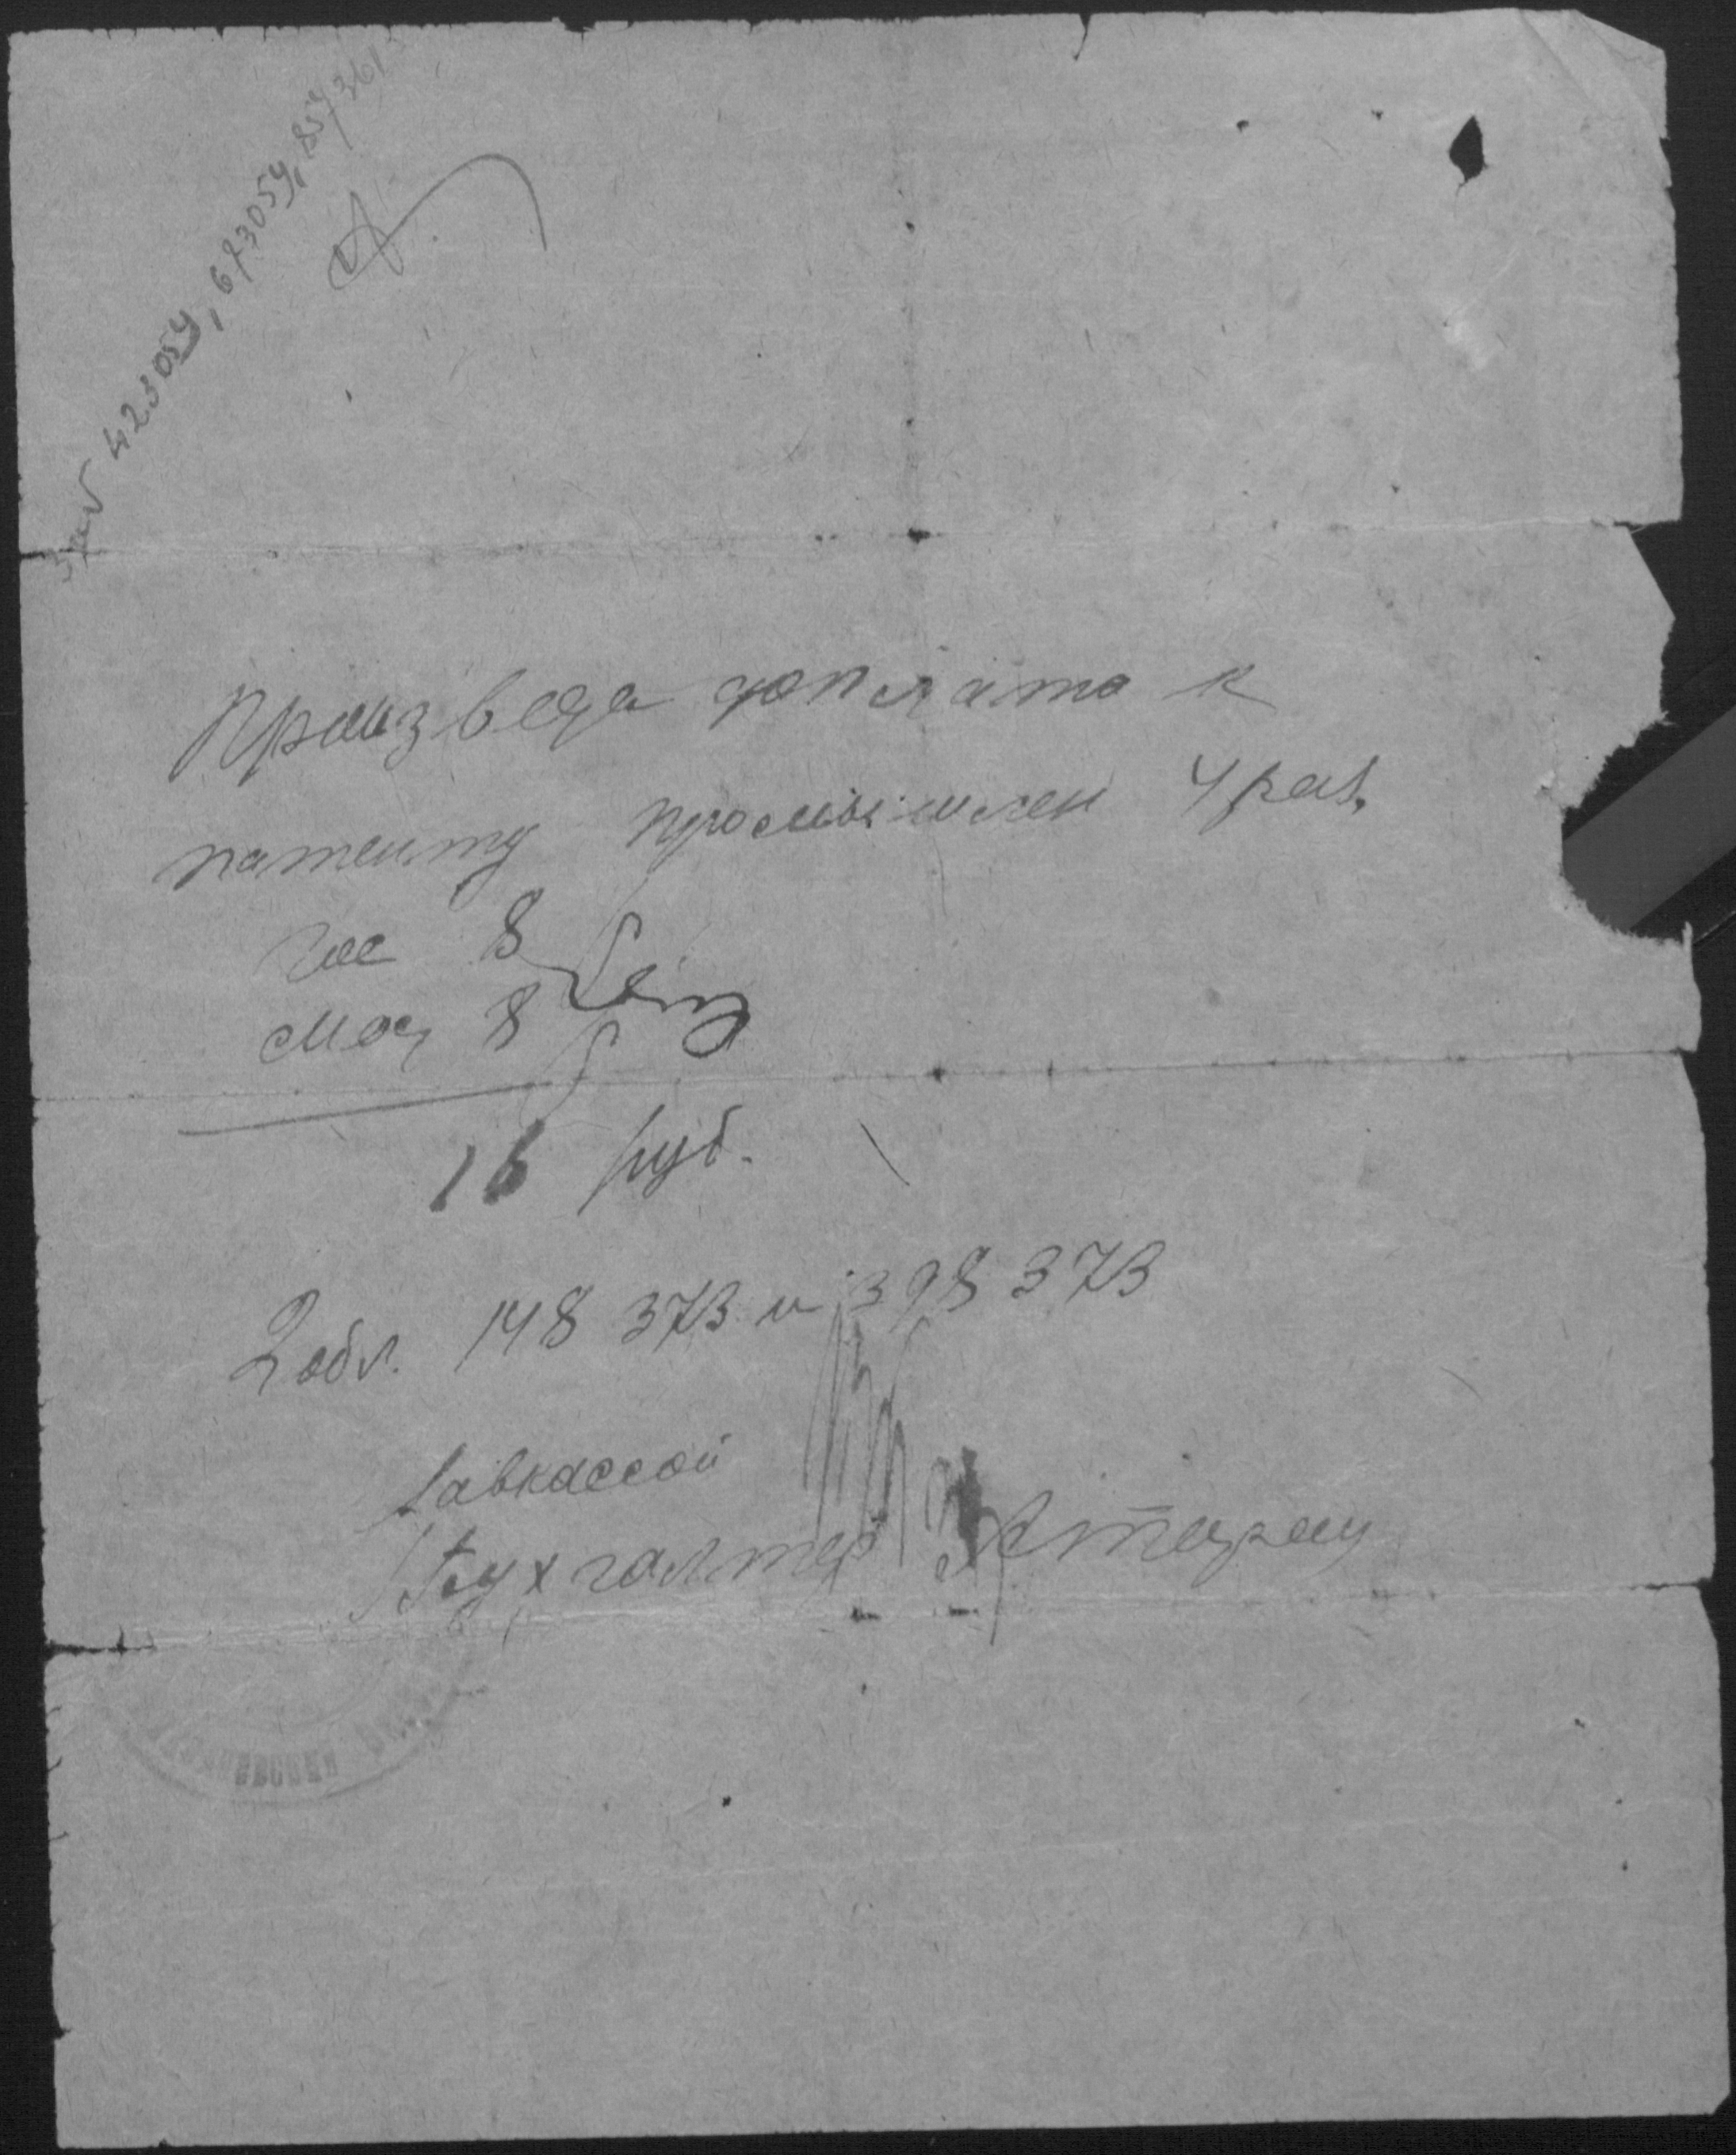 423054, 673054, 857361
Произведа доплата к
патенту промышлен 4 раз.
гос 8
мест 8
16 руб.
2 обл. 148 373 и 398 373
Завкассой
Бухгалтер